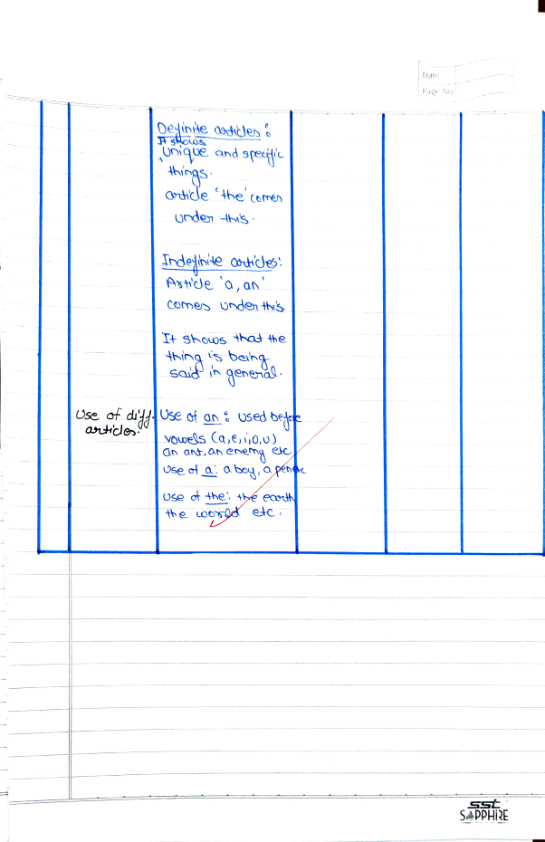 Date
Page No.
Definite articles :
It shows
unique and specific
things.
article 'the' comes
under this.
Indefinite articles:
Article 'a, an'
comes under this
It shows that the
thing is being
said in general.
Use of diff.
articles.
Use of an : used before
vowels (a,e,i,o,u)
an ant, an enemy etc
Use of a: a boy, a pencil
Use of the: the earth
the world etc.
sst
SAPPHIRE